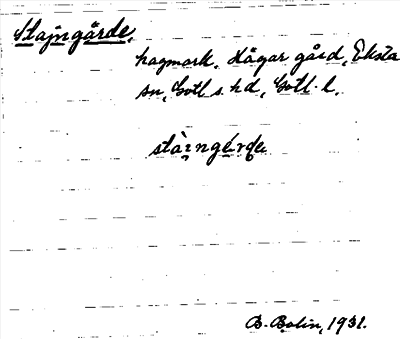 Stajngårde,
hagmark, Hägar gård, Eksta
sn, Gotl s. hd, Gotl. l.
stàingérde
B. Bolin, 1931.